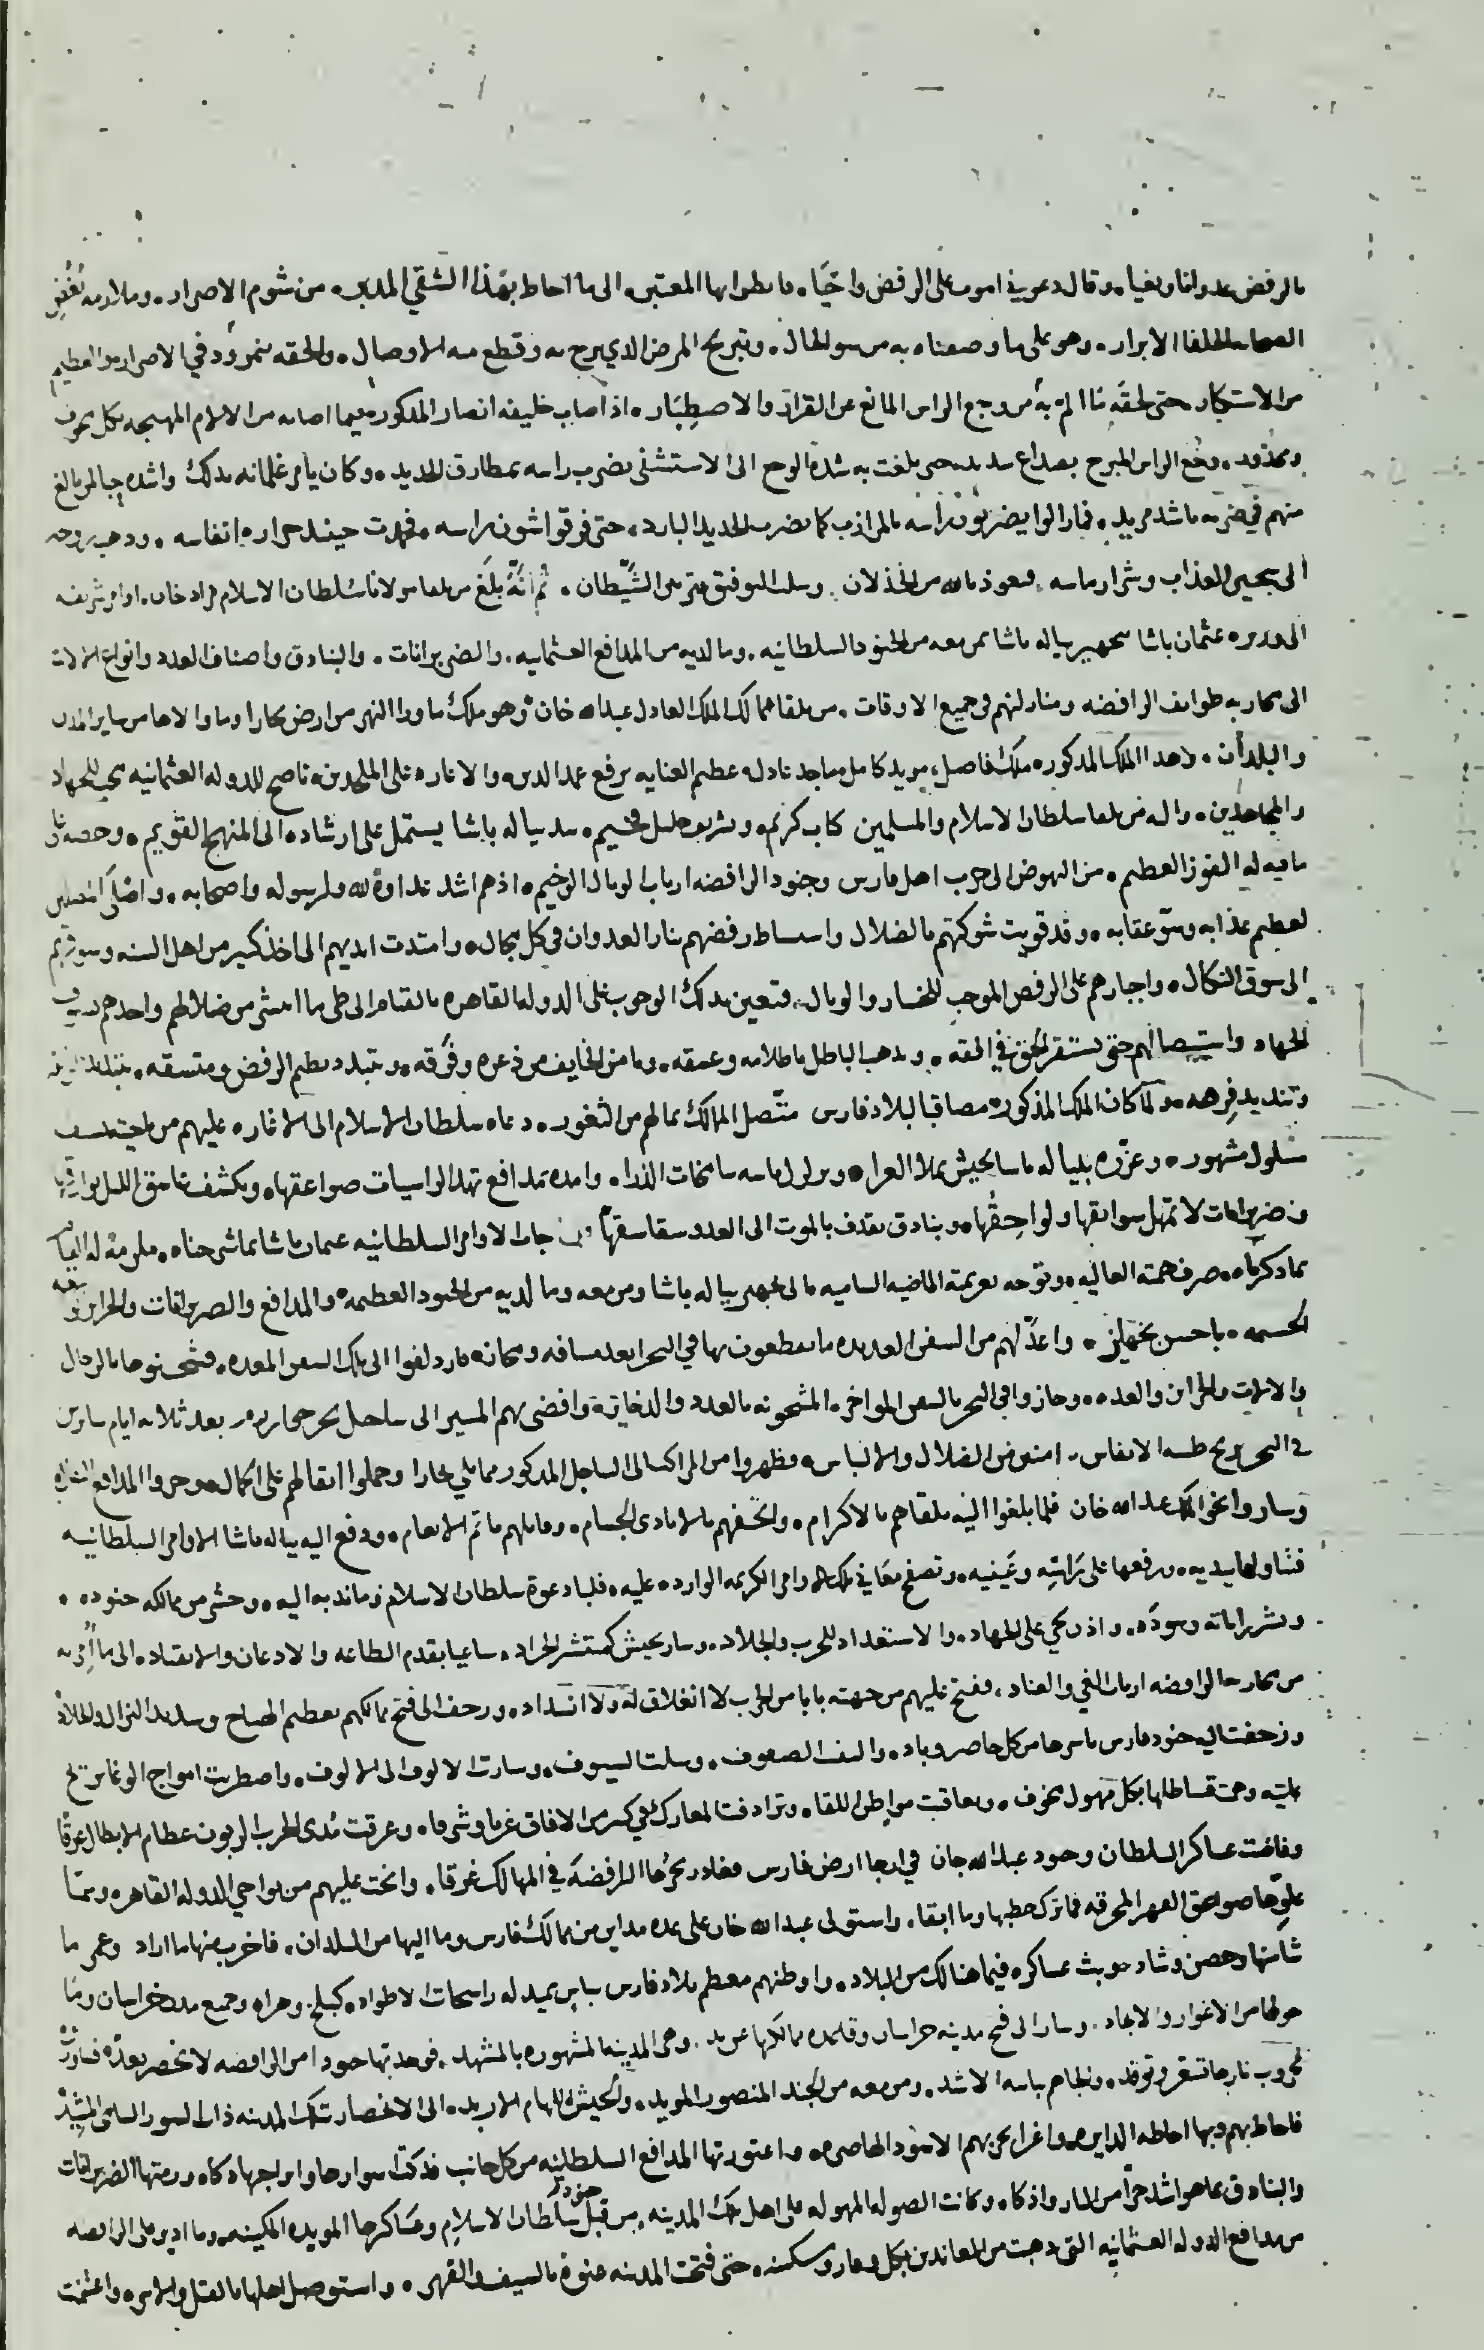 بالرفض عدوانا وبغيا وقال دعوني اموت على الرفض واحيا فانظر ايها المعتبر الى ما احاط بهذا الشقي المدبر من شوم الاصرار وملازمة بغض
الصحابه الخلفا الابرار وهو على ما وصفناه به من سو الحال وتبريح المرض الذي برح به وقطع منه الاوصال والحقه بنمرود في الاصرار والعظيم
من الاستكبار حتى لحقه ما الم به من وجع الراس المانع عن القرار والاصطبار اذ اصاب خليفه انصار المذكور فيما اصابه من الالام المهيجه بكل
وجع الراس المبرح بصداع شديد حتى بلغت به شدة الوجع الى الاستشفى بضرب راسه بمطارق الحديد وكان يامر غلمانه بذلك واشدهم اليه من بالغ
منهم في ضربه باشد مزيد فما زالوا يضربون راسه بالمرازب كما يضرب الحديد البارد حتى فرقوا شون راسه فهدت حينيذ حراره انفاسه وذهب بروحه
الى سجين العذاب وشرار ناسه فنعوذ بالله من الخذلان ونسله التوفيق من الشيطان ثم انه بلغ من تلقا مولانا سلطان الاسلام مراد خان اوامر شريفه
الى وزيره عثمان باشا بتجهيز بياله باشا بمن معه من الجنود السلطانيه وما لديه من المدافع العثمانيه والضربزانات والبنادق واصناف العدد وانواع الالات
الى محاربه طوايف الرافضه ومنازلتهم في جميع الاوقات من تلقا ممالك الملك العادل عبدالله خان وهو ملك ما ورا النهر من ارض بخارا وما والاها من ساير المدن
والبلدان وهذا الملك المذكور ملك فاضل مويد كامل ماجد عادل عظيم العنايه برفع عماد الدين والاغاره على الملحدين ناصح للدوله العثمانيه محب للجهاد
والمجاهدين واليه من تلقا سلطان الاسلام والمسلمين كتاب كريم وتشريف جليل فخيم بيد بياله باشا يشتمل على ارشاده الى المنهج القويم وحضه على
ما فيه له الفوز العظيم من النهوض الى حرب اهل فارس وجنود الرافضه ارباب الوبال الوخيم اذ هم اشد عداوة لله ولرسوله واصحابه
لعظيم عذابه وسو عقابه وقد قويت شوكتهم بالضلال واستشاط رفضهم بنار العدوان في كل مجال وامتدت ايديهم الى اخذ كثير من اهل السنه وسوقهم
الى سوق النكال واجبارهم على الرفض الموجب للخسار والوبال فتعين بذلك الوجوب على الدوله القاهره بالقيام الى طي ما انتشر من ضلالهم واخذهم بسيف
الجهاد واستيصالهم حتى يستقر الحق في افقه ويذهب الباطل بظلامه وغسقه ويامن الخايف من ذعره وفرقه ويتبدد نظيم الرفض ومتسقه
وتبديد فرقه ولما كان الملك المذكور مصاقبا لبلاد فارس متصل الممالك بما لهم من الثغور دعاه سلطان الاسلام الى الاغاره عليهم من جهته بسيف
مسلول مشهور وعززه ببياله باشا بجيش يملا العرا ويزلزل باسه شامخات الذرا وامده بمدافع تهد الراسيات صواعقها ويكشف غاسق الليل بوارقها
وضربزانات لا تمهل سوابقها ولواحقها وبنادق تقذف بالموت الى العدو جات الاوامر السلطانيه عثمان باشا بما شرحناه ملزمة له القيام
بما ذكرناه صرف همته العاليه وتوجه بعزيمته الماضيه الساميه الى تجهيز بياله باشا ومن معه وما لديه من الجنود العظيمه والمدافع والضربزانات والخزاين
الجسيمه باحسن تجهيز واعد لهم من السفن العديده ما يقطعون بها في البحر ابعد مسافه ومكانه فازدلفوا الى تلك السفن المعده فشحنوها بالرجال
والالات والخزاين والعدد وجازوا في البحر بالسفن المواخر المشحونه بالعدد والذخاير وافضى بهم المسير الى ساحل بحر بعد ثلاثه ايام سايرين
في البحر بريح طيبه الانفاس امنين من الضلال والالتباس وظهروا من المراكب الى الساحل المذكور مما يلي بخارا وحملوا اثقالهم على الجمال وجروا المدافع
وساروا نحو الملك عبدالله خان فلما بلغوا اليه تلقاهم بالاكرام واتحفهم بالايادي الجسام وقابلهم باتم الانعام ودفع اليه بياله باشا الاوامر السلطانيه
فتناولها بيديه ورفعها على راسه وعينيه وتصفح معاني تلك الاوامر الكريمه الوارده عليه فلبا دعوة سلطان الاسلام وما ندبه اليه وحشر من ممالكه جنوده
ونشر راياته وبنوده واذن بحي على الجهاد والاستعداد للحرب والجلاد وسار بجيش كمنتشر الجراد ساعيا بقدم الطاعه والاذعان والانقياد الى ما امر به
من محاربه الرافضه ارباب الغي والعناد ففتح عليهم من جهته بابا من الحرب لا انغلاق له ولا انسداد وزحف الى فتح ممالكهم بعظيم الكفاح وشديد النزال والجلاد
وزحفت اليه جنود فارس باسرها من كل حاضر وباد والتف الصفوف وسلت السيوف وسارت الالوف الى الالوف واضطربت امواج الوغا بريح
قساطلها بكل مهول مخوف وتعاقبت مواطن اللقا وترادفت المعارك في كثير من الافاق غربا وشرقا وعرقت مدى الحرب الزبون عظام الابطال عرقا
وفاضت عساكر السلطان وجنود عبدالله خان في ارجا ارض فارس فغادر بحرها الرافضه في المهالك غرقا وانحت عليهم من نواحي الدوله القاهره
صواعق القهر المحرقه فما ترك خطبها وما ابقا واستولى عبدالله خان على عده مداين من ممالك فارس وما اليها من البلدان فاخرب منها ما اراد وعمر ما
شا منها وحصن وشاد وبث عساكره فيما هنالك من البلاد واوطنهم معظم بلاد فارس بباس يميد له راسخات الاطواد كبلخ وهراه وجميع مدن خراسان وما
حولها من الاغوار والانجاد وسار الى فتح مدينه خراسان وقاعده ممالكها وهي المدينه المشهوره بالمشهد فوجد بها جنودا من الرافضه لا تنحصر بعد
لحروب نارها تستعر وتوقد والجاهم باسه الاشد ومن معه من الجند المنصور المويد والجيش اللهام الاربد الى الانحصار بتلك المدينه ذات السور السامي المشيد
فاحاط بهم وبها احاطه الدايره واغرا بحربهم الاسود الهاصره واعتورتها المدافع السلطانيه من كل جانب فدكت اسوارها وابراجها دكا ورمتها الضربزانات
والبنادق بما هو اشد حرا من النار واذكا وكانت الصوله المهوله على اهل تلك المدينه من قبل جنود سلطان الاسلام وعساكرها المويده المكينه وما ادير على الرافضه
من مدافع الدوله العثمانيه التي ذهبت من المعاندين بكل وقار وسكينه حتى فتحت المدينه عنوة بالسيف والقهر واستوصل اهلها بالقتل والاسر واغتنمت